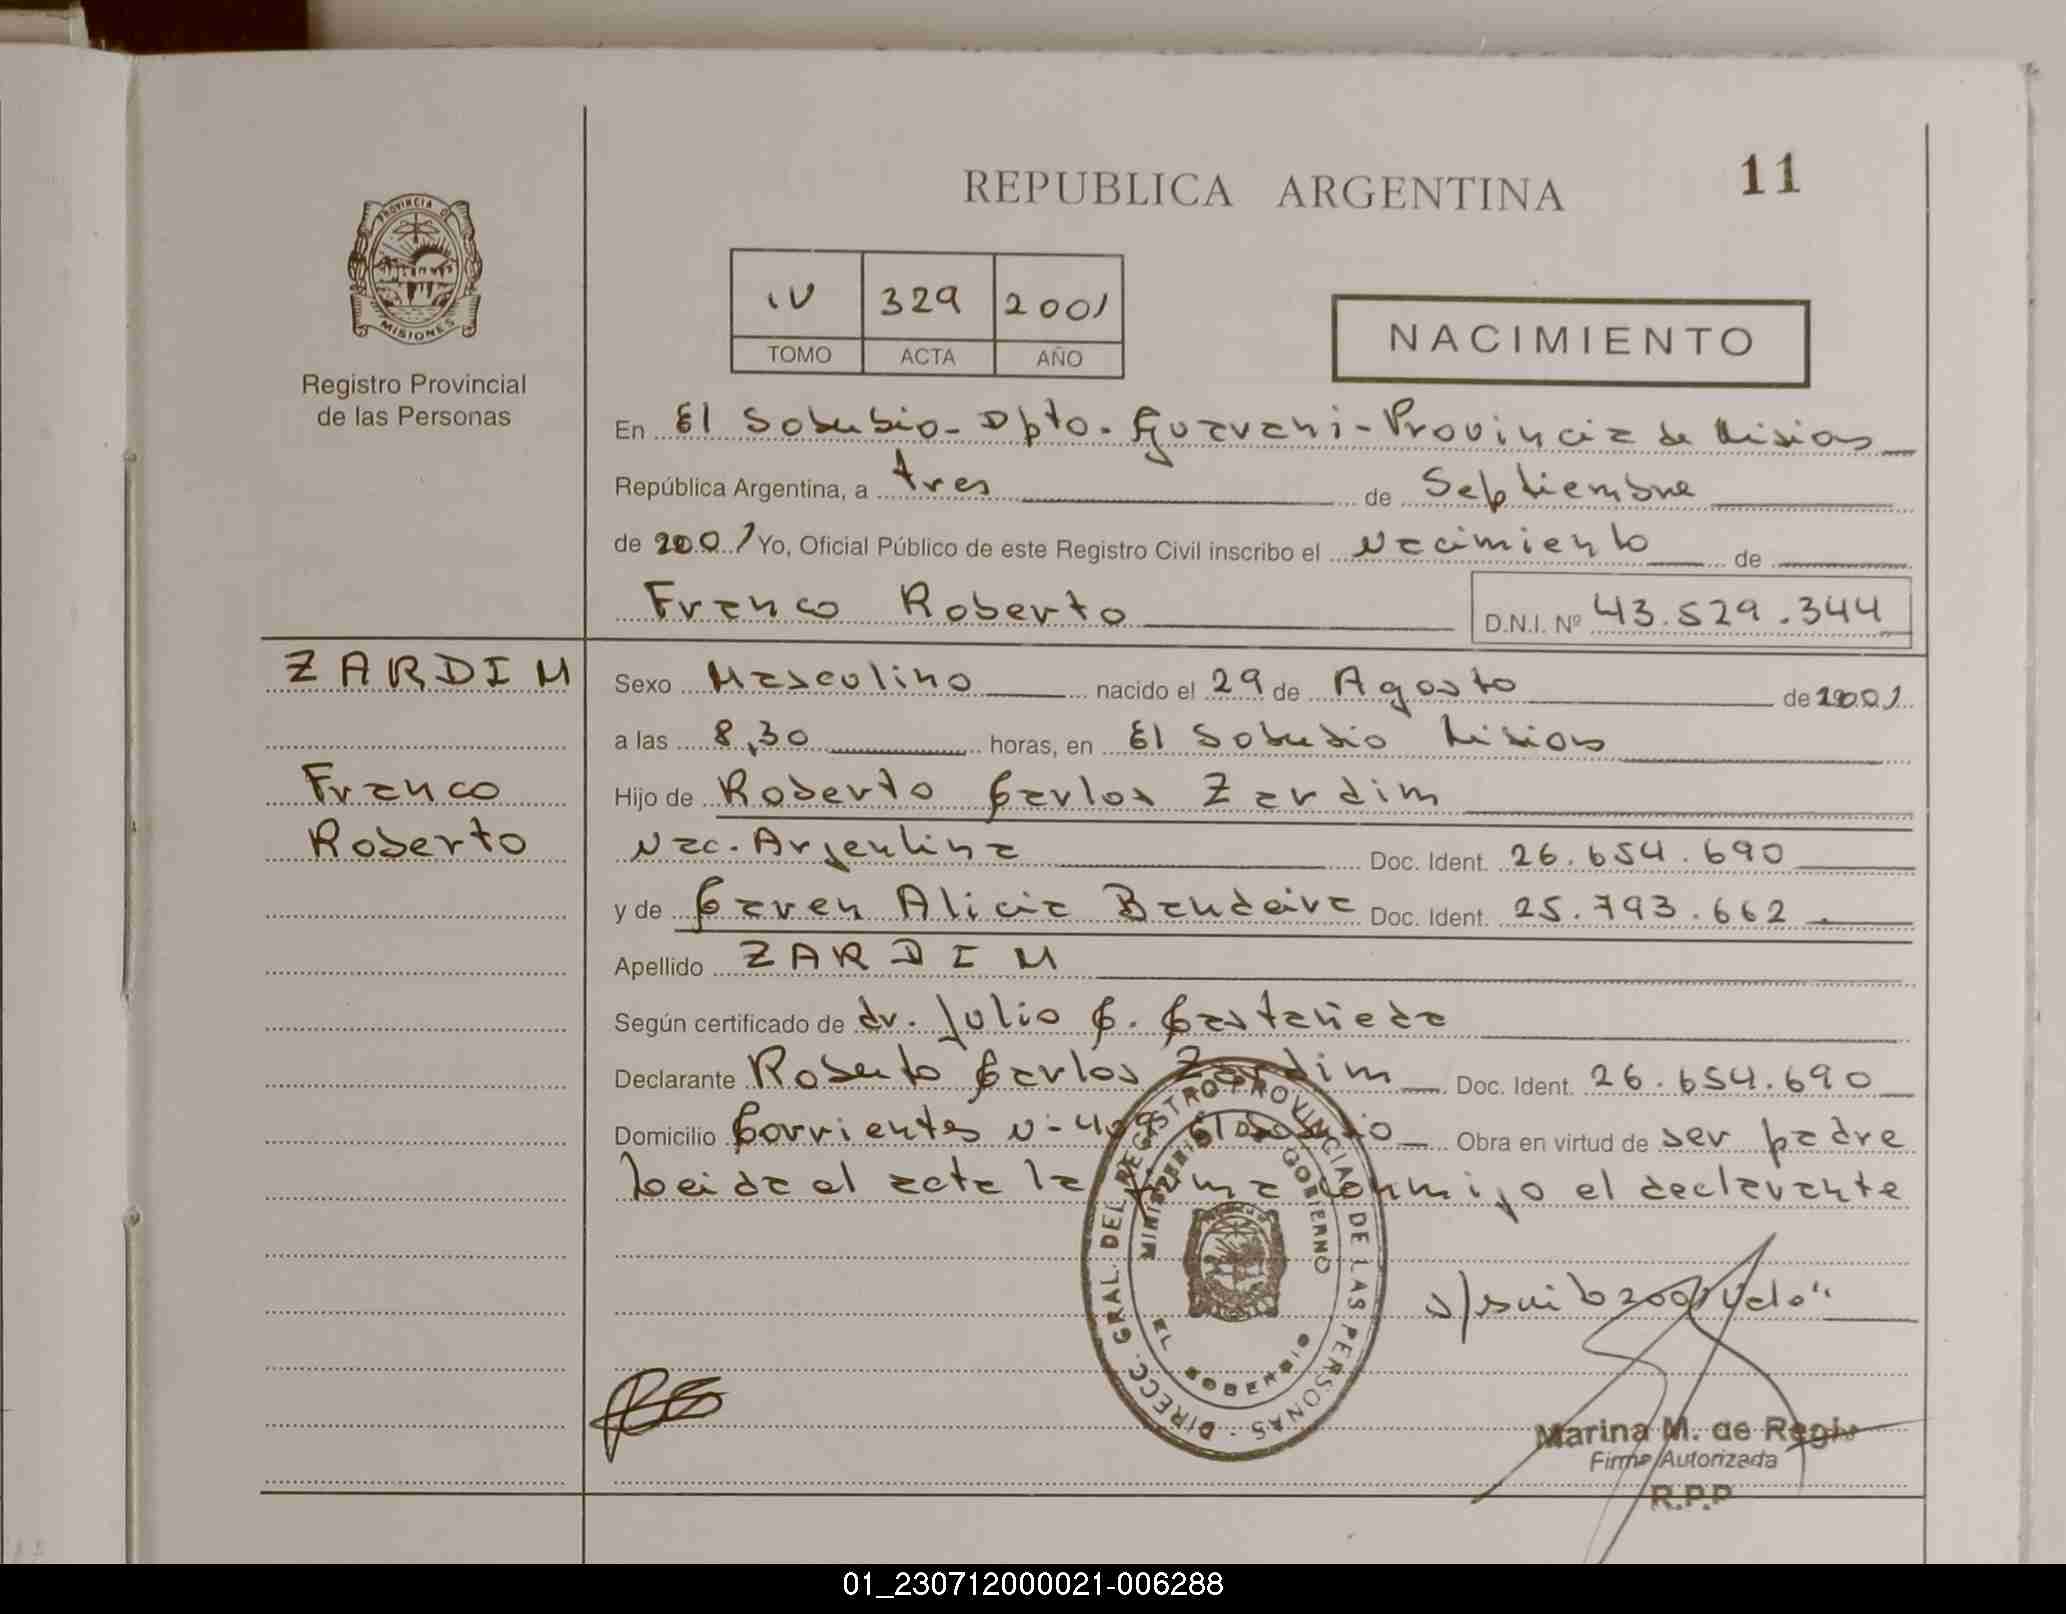 11
REPUBLICA ARGENTINA
PROVINCIA DE
MISIONES
Registro Provincial
de las Personas
IV 329 2001
TOMO ACTA AÑO
NACIMIENTO
En El Soberbio - Dpto. Guarani - Provincia de Misiones
República Argentina, a tres de Septiembre
de 2001 Yo, Oficial Público de este Registro Civil inscribo el Nacimiento de
Franco Roberto D.N.I. Nº 43.529.344
ZARDIM
Franco
Roberto
Sexo Masculino nacido el 29 de Agosto de 2001
a las 8,30 horas, en El Soberbio Misiones
Hijo de Roberto Carlos Zardim
Nac. Argentina Doc. Ident. 26.654.690
y de Caren Alicia Bandeira Doc. Ident. 25.793.662
Apellido ZARDIM
Según certificado de dr. Julio C. Castañeda
Declarante Roberto Carlos Zardim Doc. Ident. 26.654.690
Domicilio Corrientes N- El Soberbio Obra en virtud de ser padre
Leida el acta la firma conmigo el declarante
DIRECC. GRAL. DEL REGISTRO PROVINCIAL DE LAS PERSONAS
MINISTERIO GOBIERNO
EL SOBERBIO
Marina M. de Regis
Firma Autorizada
R.P.P
01_230712000021-006288